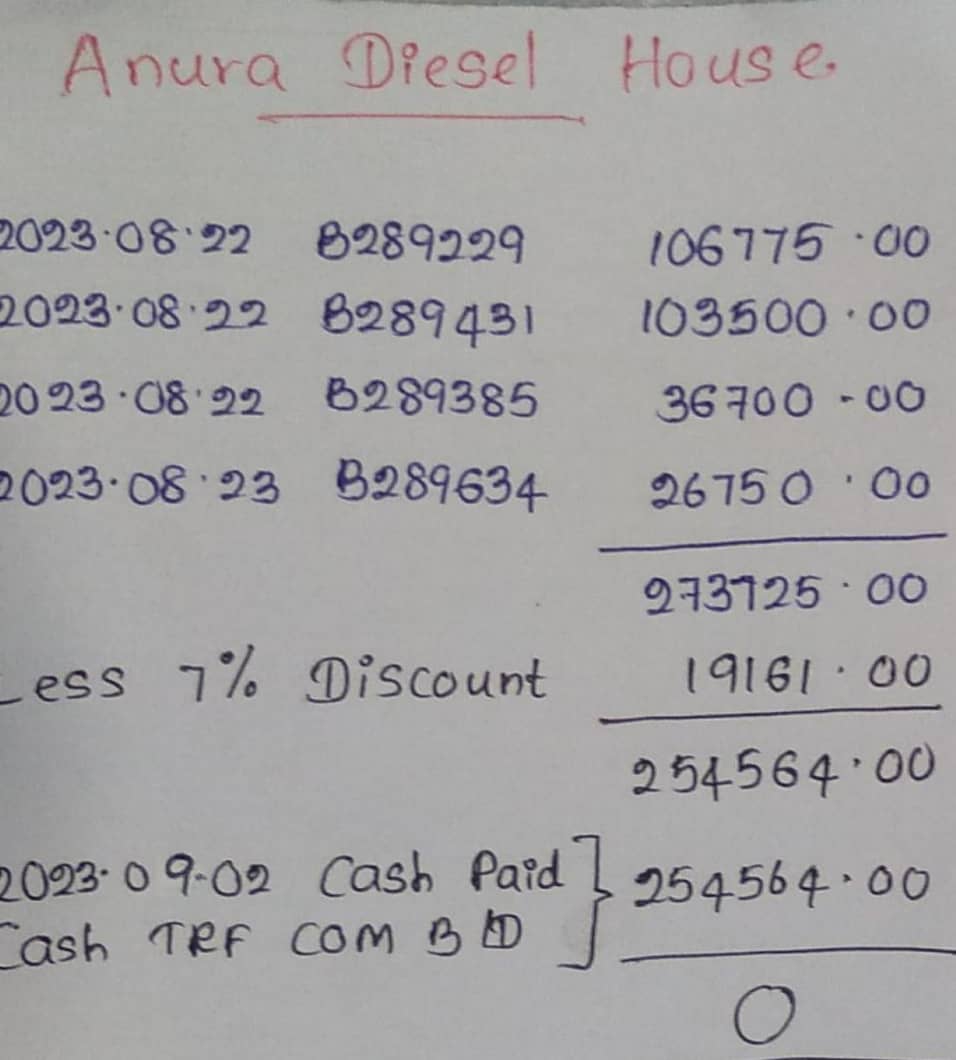 Anura Diesel House
2023.08.22 B289229 106775.00
2023.08.22 B289431 103500.00
2023.08.22 B289385 36700-00
2023.08.23 B289634 26750.00
273725.00
Less 7% Discount 19161.00
254564.00
2023.09-02 Cash Paid 254564.00
Cash TRF COM B
0